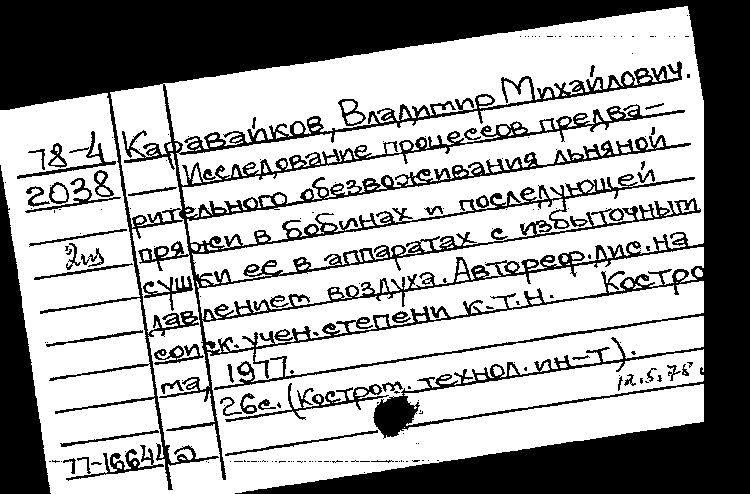 78-4 Каравайков, Владимир Михайлович.
2038 Исследование процессов предва-
рительного обезвоживания льняной
2из пряжи в бобинах и последующей
сушки ее в аппаратах с избыточным
давлением воздуха. Автореф. дис. на
соиск. учен. степени к.т.н. Костро
ма, 1977.
26с. (Костром. технол. ин-т).
12.5.78.
77-16644а